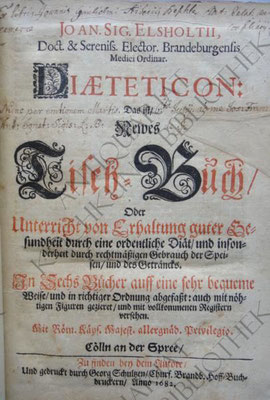 JOAN. SIG. ELSHOLTII,
Doct. & Sereniss. Elector. Brandeburgensis
Medici Ordinar.
DIÆTETICON:
Das ist/
Newes
Tisch-Buch/
Oder
Unterricht von Erhaltung guter Ge-
sundheit durch eine ordentliche Diät/ und inson-
derheit durch rechtmäßigen Gebrauch der Spei-
sen/ und des Getråncks.
In Sechs Bücher auff eine sehr bequeme
Weise/ und in richtiger Ordnung abgefaßt: auch mit nöh-
tigen Figuren gezieret/ und mit vollkommenen Registern
versehen.
Mit Röm. Käys. Majest. allergnäd. Privilegio.
Cölln an der Spree/
Zu finden bey dem Autore/
Und gedruckt durch Georg Schultzen/ Churf. Brandb. Hoff/Buch-
druckern/ Anno 1682.